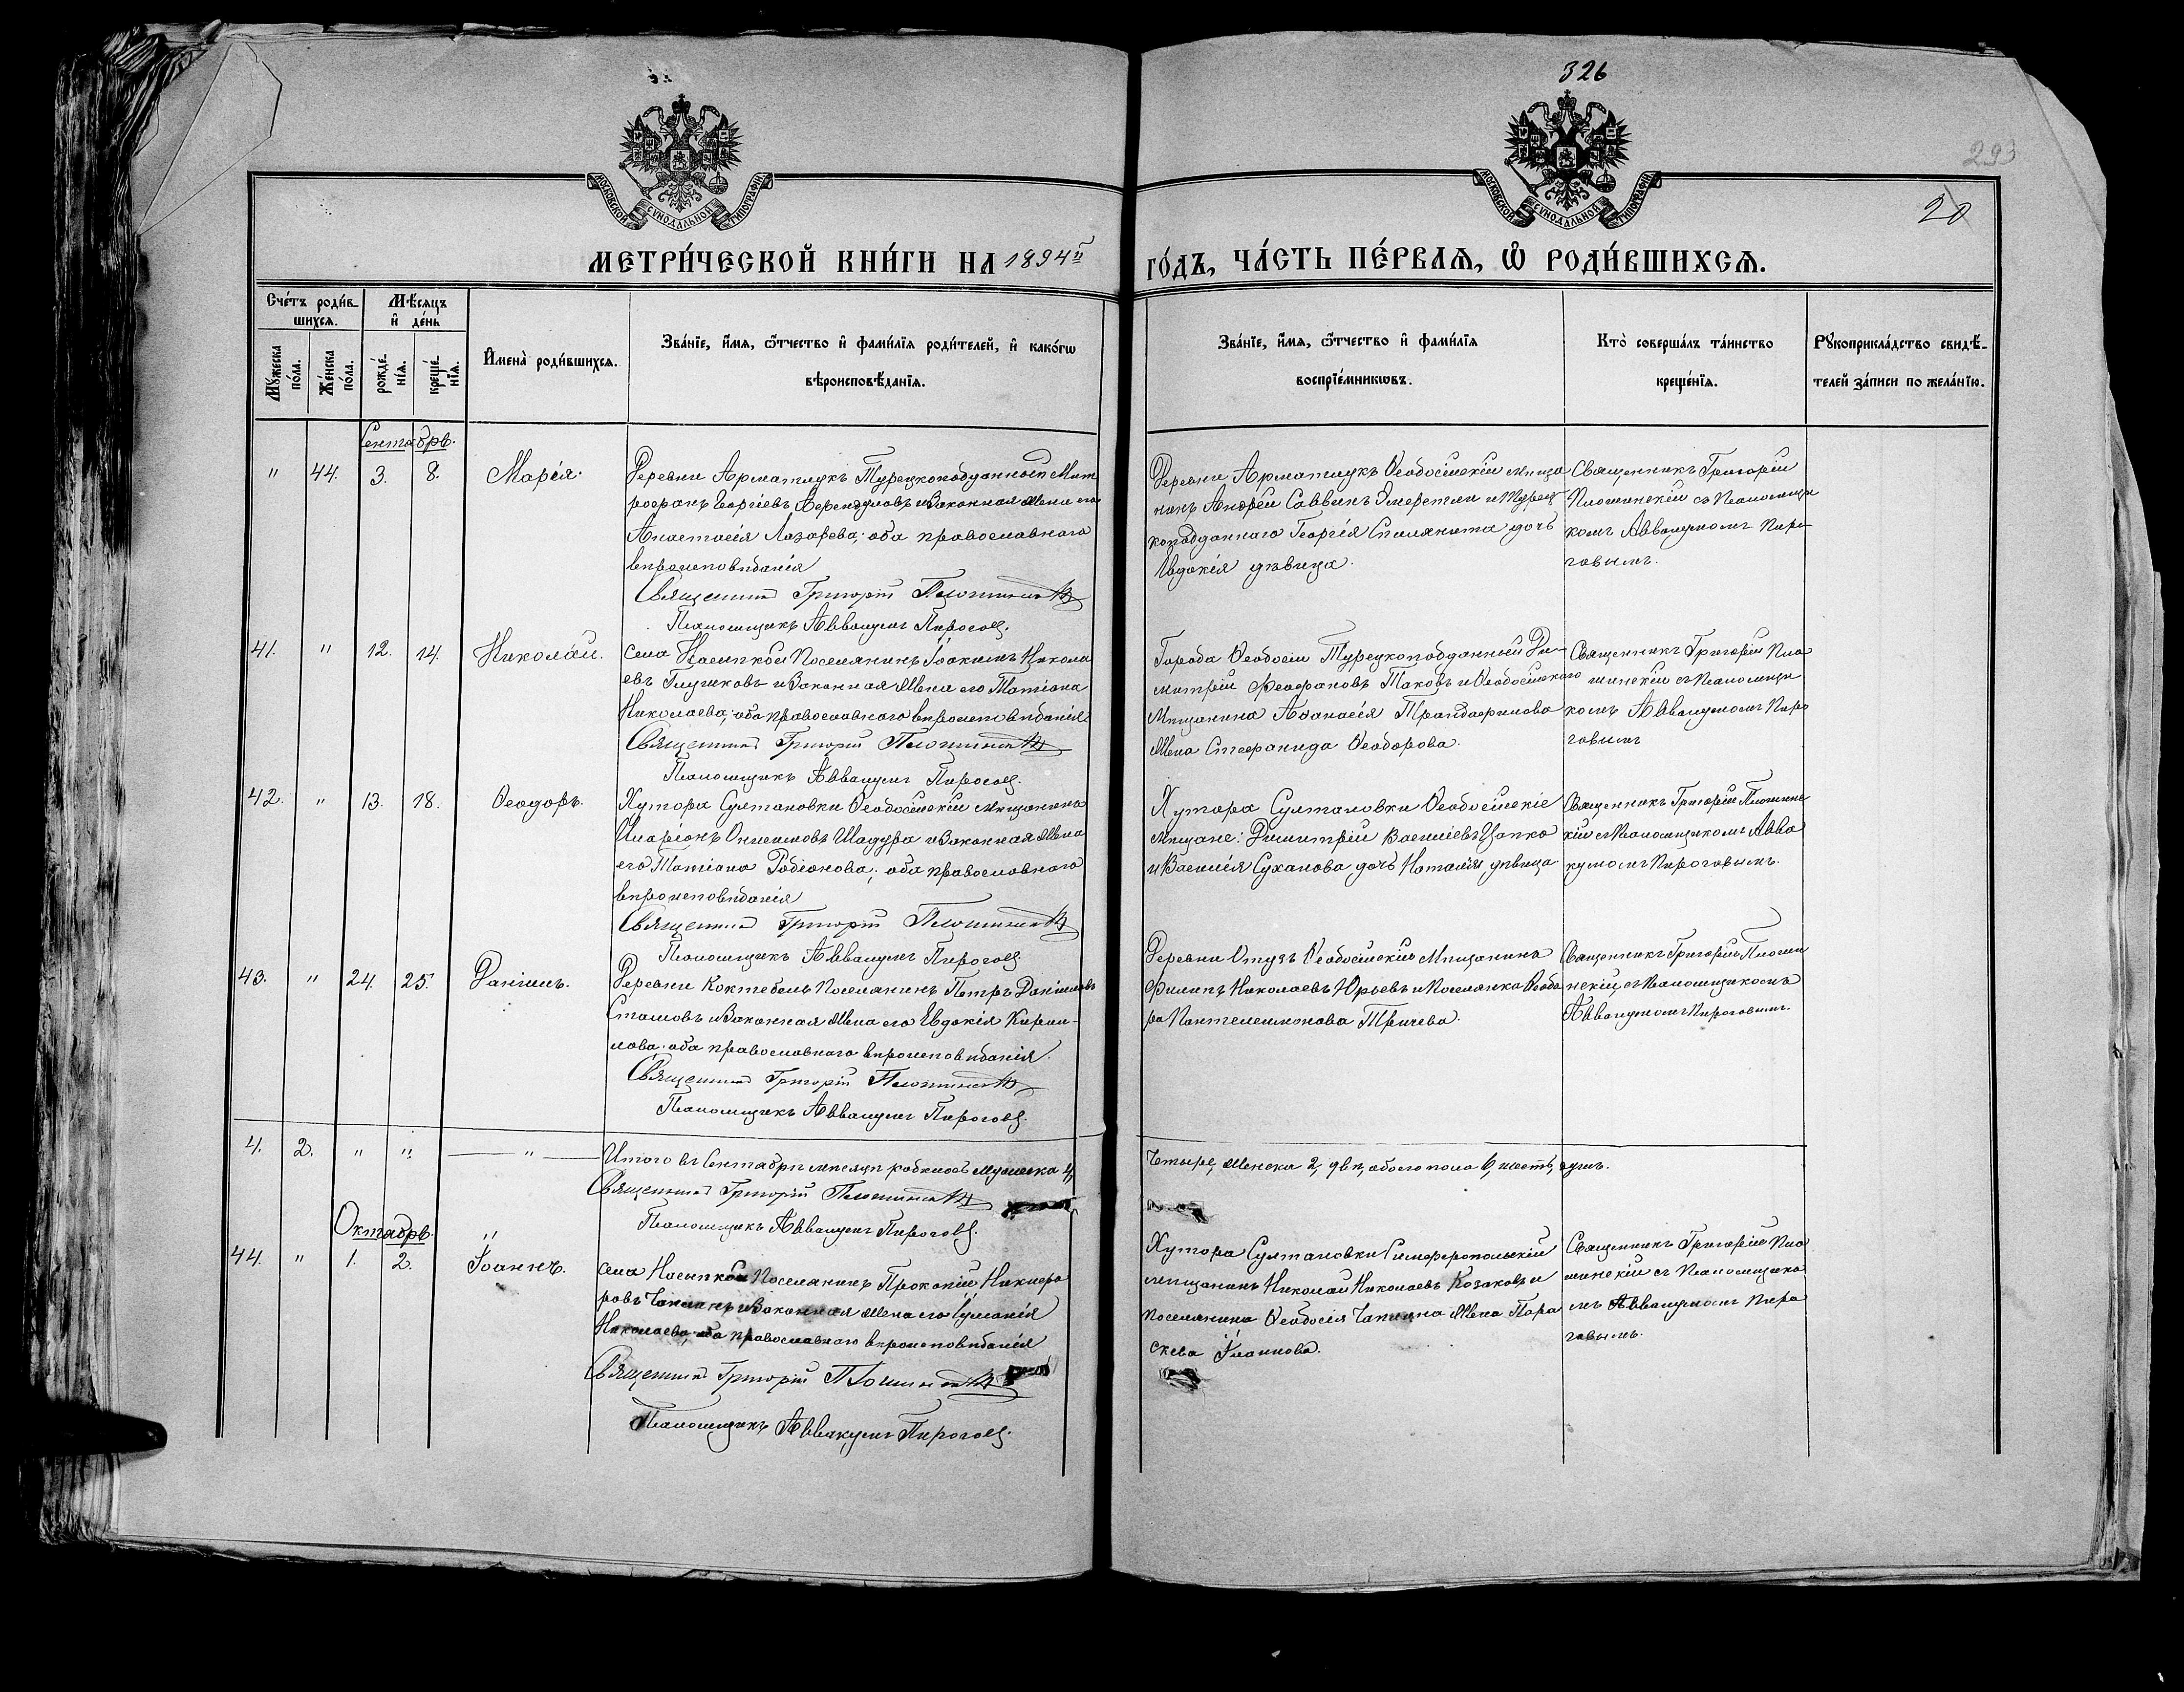 326
293
20
МОСКОВСКОЙ СѴНОДАЛЬНОЙ ТИПОГРАФІИ
МОСКОВСКОЙ СѴНОДАЛЬНОЙ ТИПОГРАФІИ
МЕТРИ́ЧЕСКОЙ КНИ́ГИ НА 1894й
ГО́ДЪ, ЧА́СТЬ ПЕ́РВАѦ, Ѡ РОДИ́ВШИХСѦ.
Сче́тъ роди́в-
шихсѧ.
Мꙋ́жеска по́ла.
Же́нска по́ла.
Мѣ́сѧцъ и де́нь
рожде́-нїѧ.
креще́-нїѧ.
Имена̀ роди́вшихсѧ.
Зва́нїе, и́мѧ, ѻ́тчество и фами́лїѧ роди́телей, и како́гѡ
вѣроисповѣ́данїѧ.
Зва́нїе, и́мѧ, ѻ́тчество и фами́лїѧ
воспрїе́мникѡвъ.
Кто̀ соверша́лъ та́инство
креще́нїѧ.
Рꙋкоприкла́дство свидѣ́-
телей за́писи по жела́нїю.
Сентябрь.
" 44. 3. 8. Марія.
Деревни Арматлукъ Турецкоподданный Мит
рофанъ Георгіевъ и законная жена его
Анастасія Лазарева; оба православнаго
вѣроисповѣданія
Священникъ Григорій
Псаломщикъ Аввакумъ Пироговъ.
Деревни Арматлукъ Ѳеодосійскій мѣща
нинъ Андрей Саввинъ и Турец
коподданнаго Георгія дочь
Евдокія дѣвица.
Священникъ Григорій
съ Псаломщи
комъ Аввакумомъ Пиро
говымъ.
41. " 12. 14. Николай.
села Насыпкой Поселянинъ Іоакимъ Никола
евъ Глушковъ и законная жена его Татіана
Николаева; оба православнаго вѣроисповѣданія.
Священникъ Григорій
Псаломщикъ Аввакумъ Пироговъ.
Города Ѳеодосіи Турецкоподданный Ди
митрій Ѳеофановъ и Ѳеодосійскаго
Мѣщанина Аѳанасія Трандафилова
жена Стефанида Ѳеодорова.
Священникъ Григорій
съ Псаломщи
комъ Аввакумомъ Пиро
говымъ
42. " 13. 18. Ѳеодоръ.
Хутора Султановки Ѳеодосійскій мѣщанинъ
Иларіонъ Онисимовъ Шадура и законная жена
его Татіана Родіонова; оба православнаго
вѣроисповѣданія
Священникъ Григорій
Псаломщикъ Аввакумъ Пироговъ
Хутора Султановки Ѳеодосійскіе
мѣщане: Димитрій Василіевъ Цапко
и Василія Суханова, дочь Наталія, дѣвица
Священникъ Григорій
съ Псаломщикомъ Авва
кумомъ Пироговымъ.
43. " 24. 25. Даніилъ.
Деревни Коктебель Поселянинъ Петръ Даніиловъ
Стамовъ и законная жена его Евдокія Кирил-
лова. оба православнаго вѣроисповѣданія.
Священникъ Григорій
Псаломщикъ Аввакумъ Пироговъ.
Деревни Отузъ Ѳеодосійскій Мѣщанинъ
Филипъ Николаевъ Юрьевъ и Поселянка Ѳеодо
ра Пантелеимонова
Священникъ Григорій
съ Псаломщикомъ
Аввакумомъ Пироговымъ.
4. 2. " " — " —
Итого въ Сентябрѣ мѣсяцѣ родилось мужеска 4,
четыре, женска 2, двѣ, обоего пола 6, шесть, душъ.
Священникъ Григорій
Псаломщикъ Аввакумъ Пироговъ.
Октябрь. "
44. " 1. 2. Іоаннъ.
села Насыпкой Поселянинъ Прокопій Никифо
ровъ и законная жена его Іуліанія
Николаева; оба православнаго вѣроисповѣданія
Священникъ Григорій
Псаломщикъ Аввакумъ Пироговъ.
Хутора Султановки Симферопольскій
мѣщанинъ Николай Николаевъ Козаковъ и
поселянина Ѳеодосія жена Пара
скева Іоаннова.
Священникъ Григорій
съ Псаломщико
мъ Аввакумомъ Пиро
говымъ.